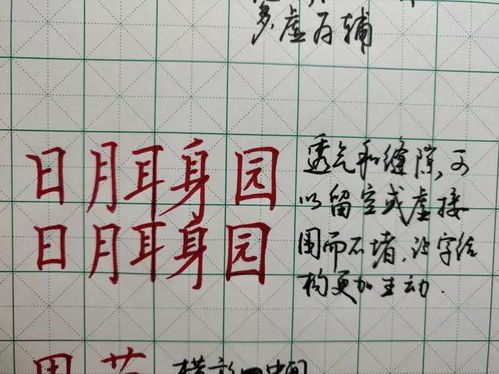 多虚右辅
日月耳身园
日月耳身园
透气和缝隙,可
以留空或虚接
围而不堵,让字结
构更加生动.
横 中间